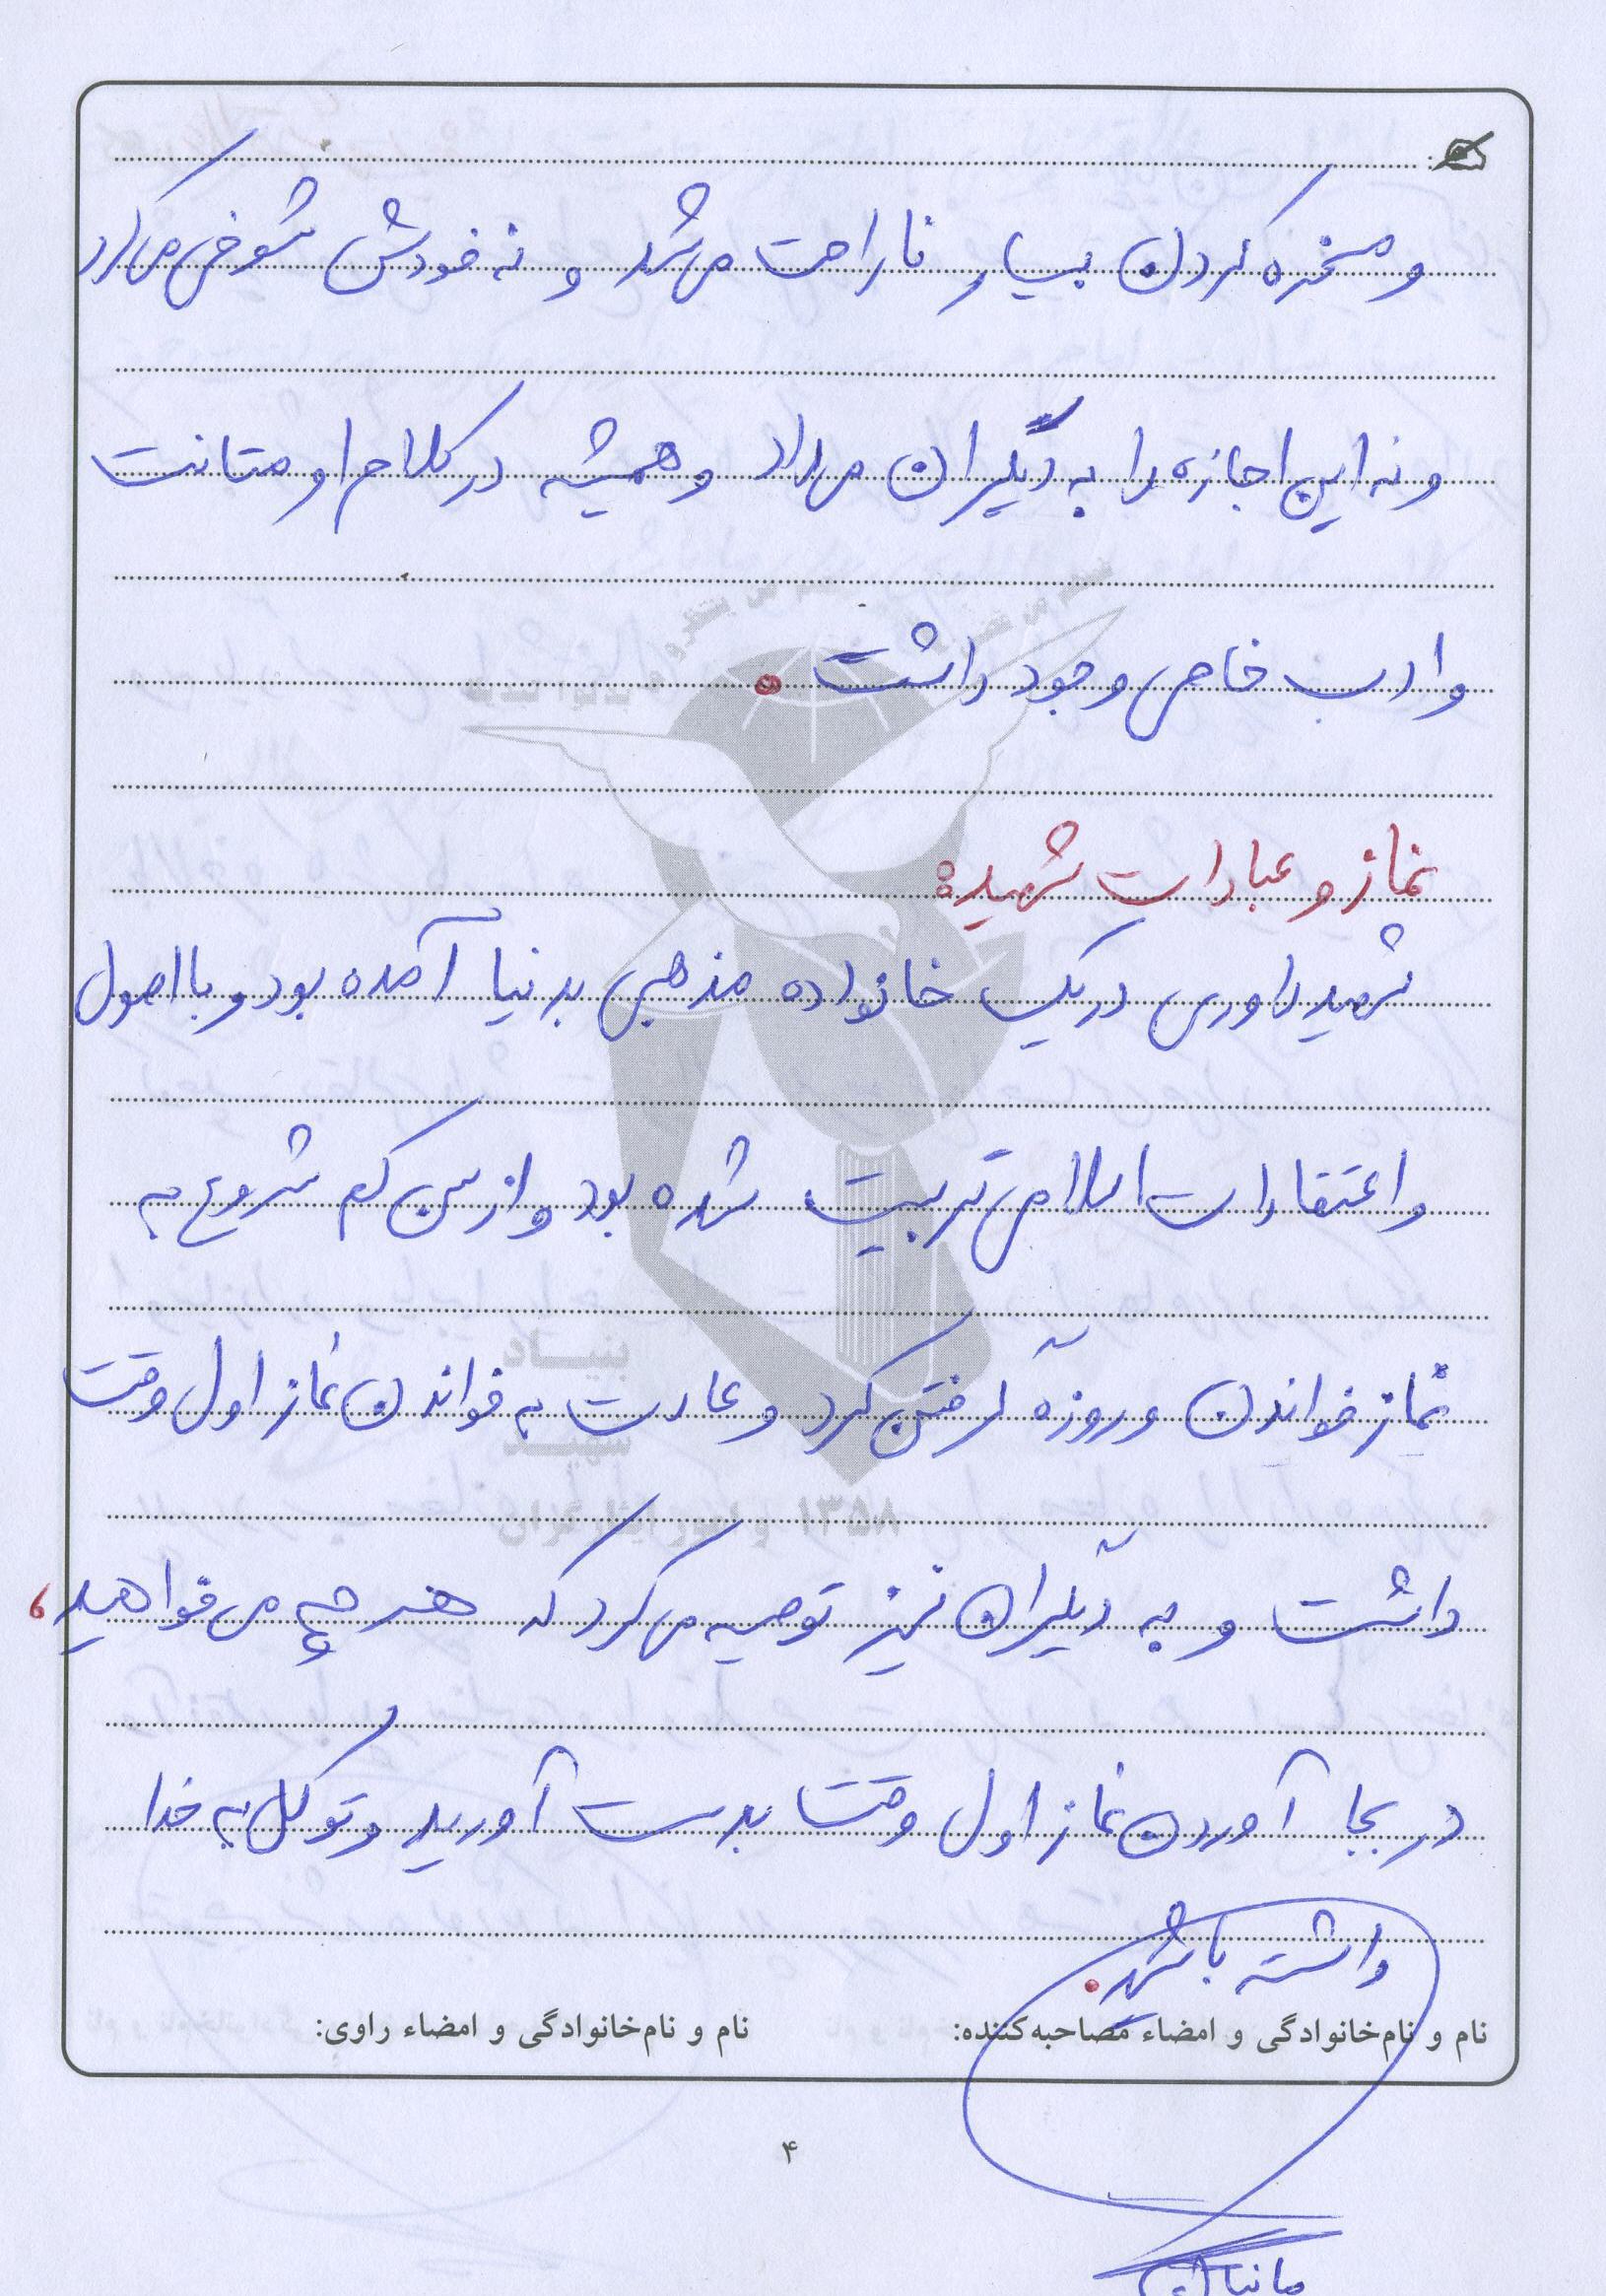 و مسخره کردن بسیار ناراحت می‌شد و نه خودش شوخی می‌کرد
و نه این اجازه را به دیگران می‌داد و همیشه در کلام او متانت
و ادب خاصی وجود داشت .
نماز و عبادات شهید:
شهید یاوری در یک خانواده مذهبی بدنیا آمده بود و با اصول
و اعتقادات اسلامی تربیت شده بود و از سن کم شروع به
نماز خواندن و روزه گرفتن کرد و عادت به خواندن نماز اول وقت
داشت و به دیگران نیز توصیه می‌کرد که هر چه می خواهید،
در بجا آوردن نماز اول وقت بدست آورید و توکل به خدا
داشته باشید.
نام و نام‌خانوادگی و امضاء مصاحبه‌کننده: نام و نام‌خانوادگی و امضاء راوی:
۴
بنیاد
شهید
و امور ایثارگران ۱۳۵۸